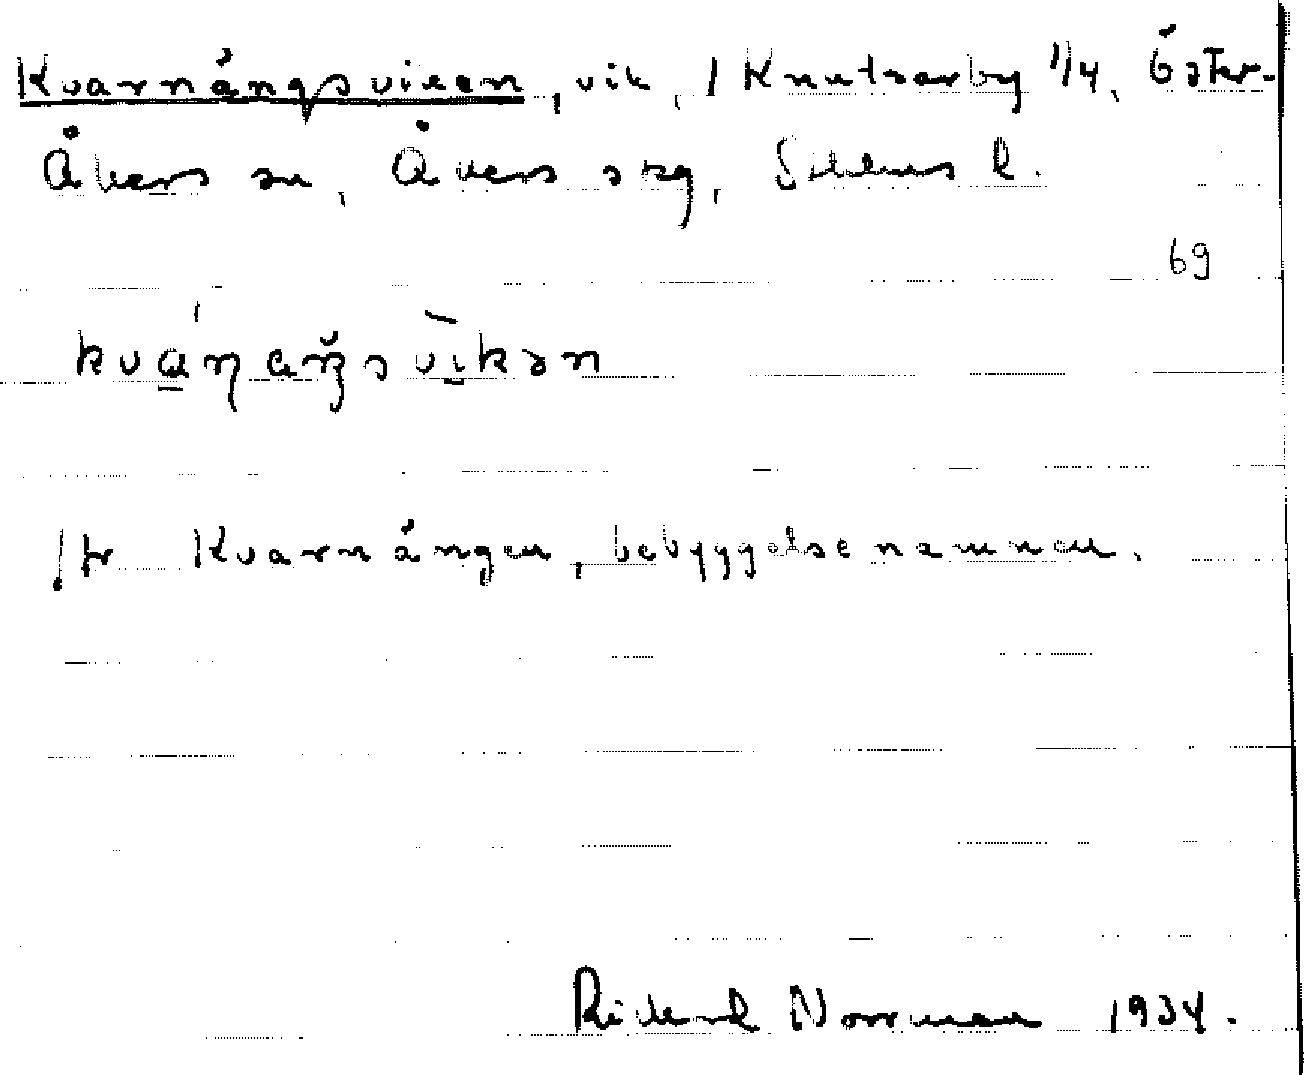 Kvarnängsviken, vik, i Knutsarby 1/4, Öster-
Åkers sn, Åkers skg, Sthlms l.
69
Jfr Kvarnängen, bebyggelsenamnen.
Rickard Norrman 1934.